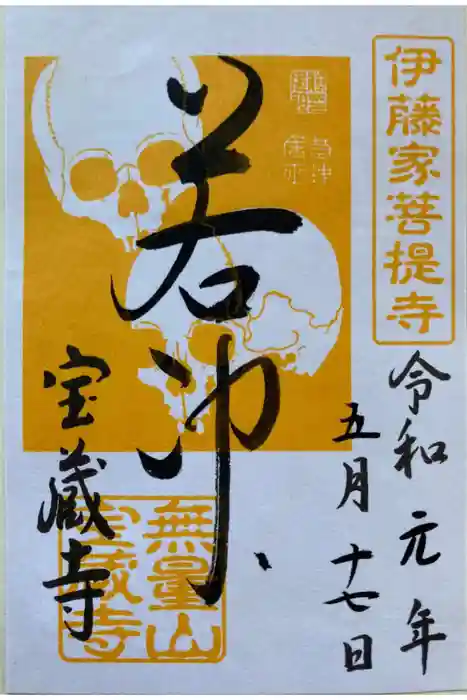 伊藤家菩提寺
令和元年
五月十七日
若冲
宝蔵寺
無量山
宝蔵寺